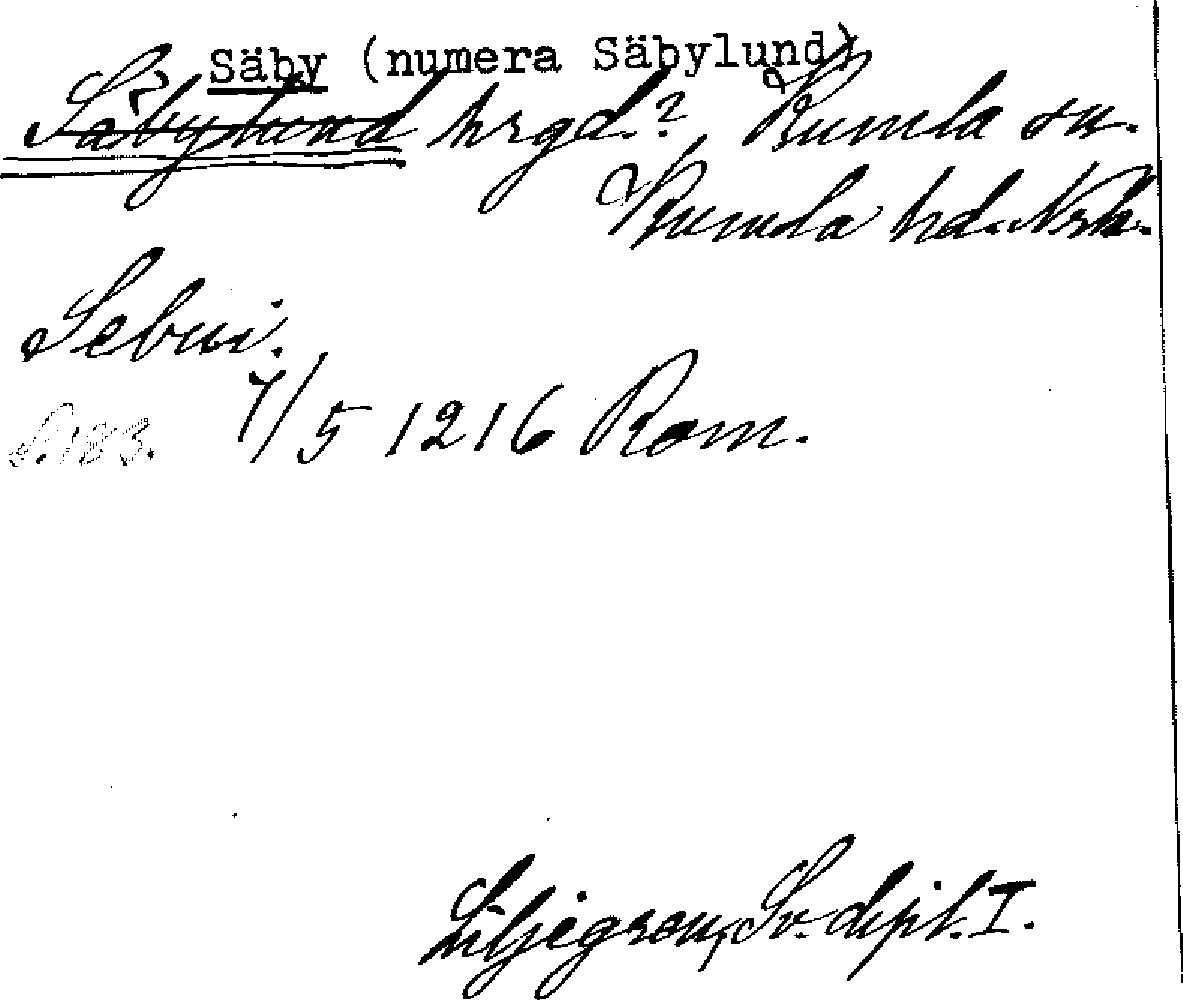 Säby (numera Säbylund)
Säbylund hrgd.? Kumla sn.
Kumla hd. Nrk.
Sebui.
S. 183. 7/5 1216 Rom.
Liljegren, Sv. dipl. I.